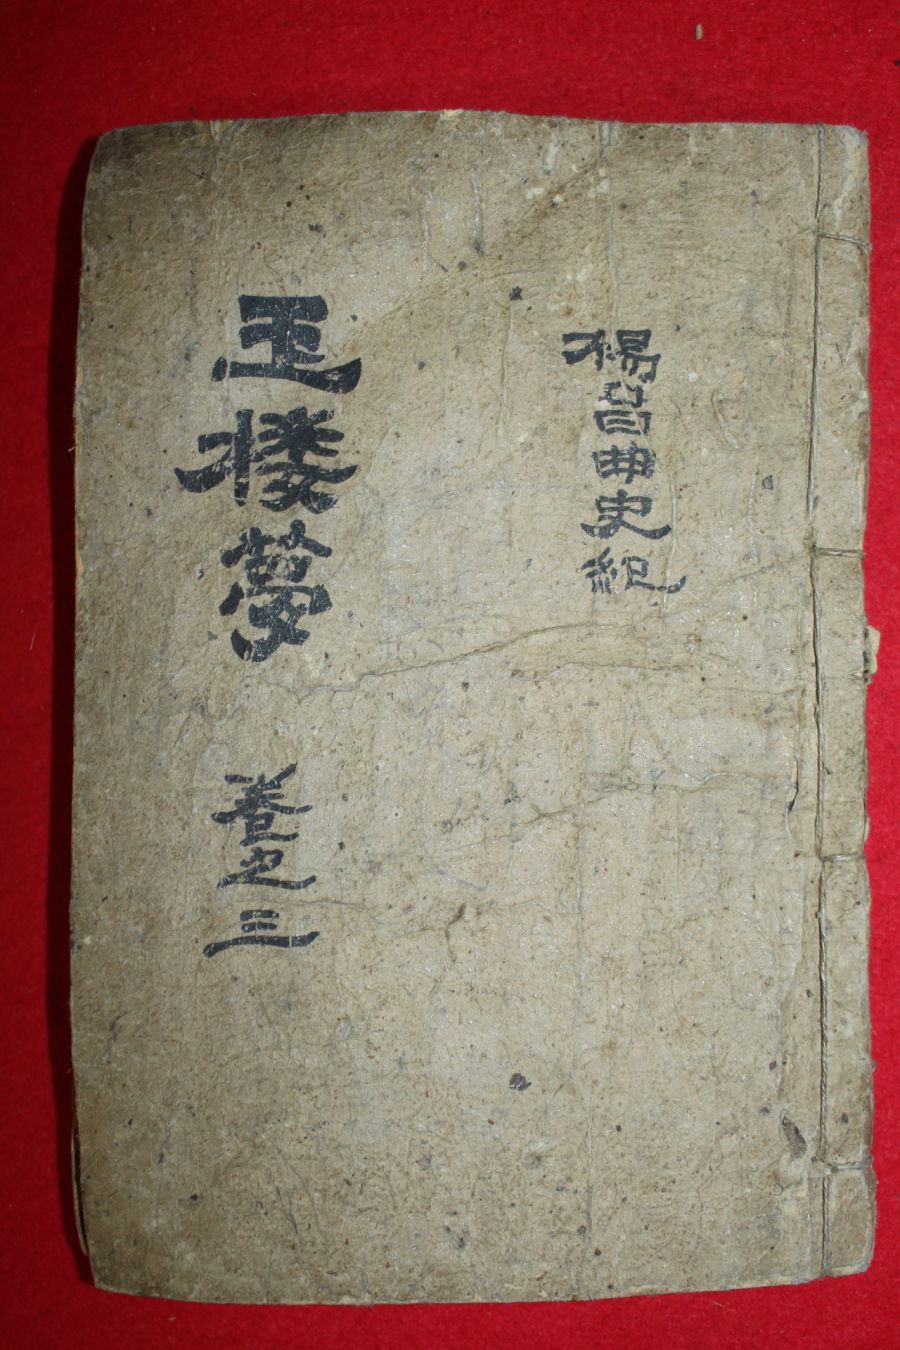 楊昌曲史紀
玉楼夢 卷之三